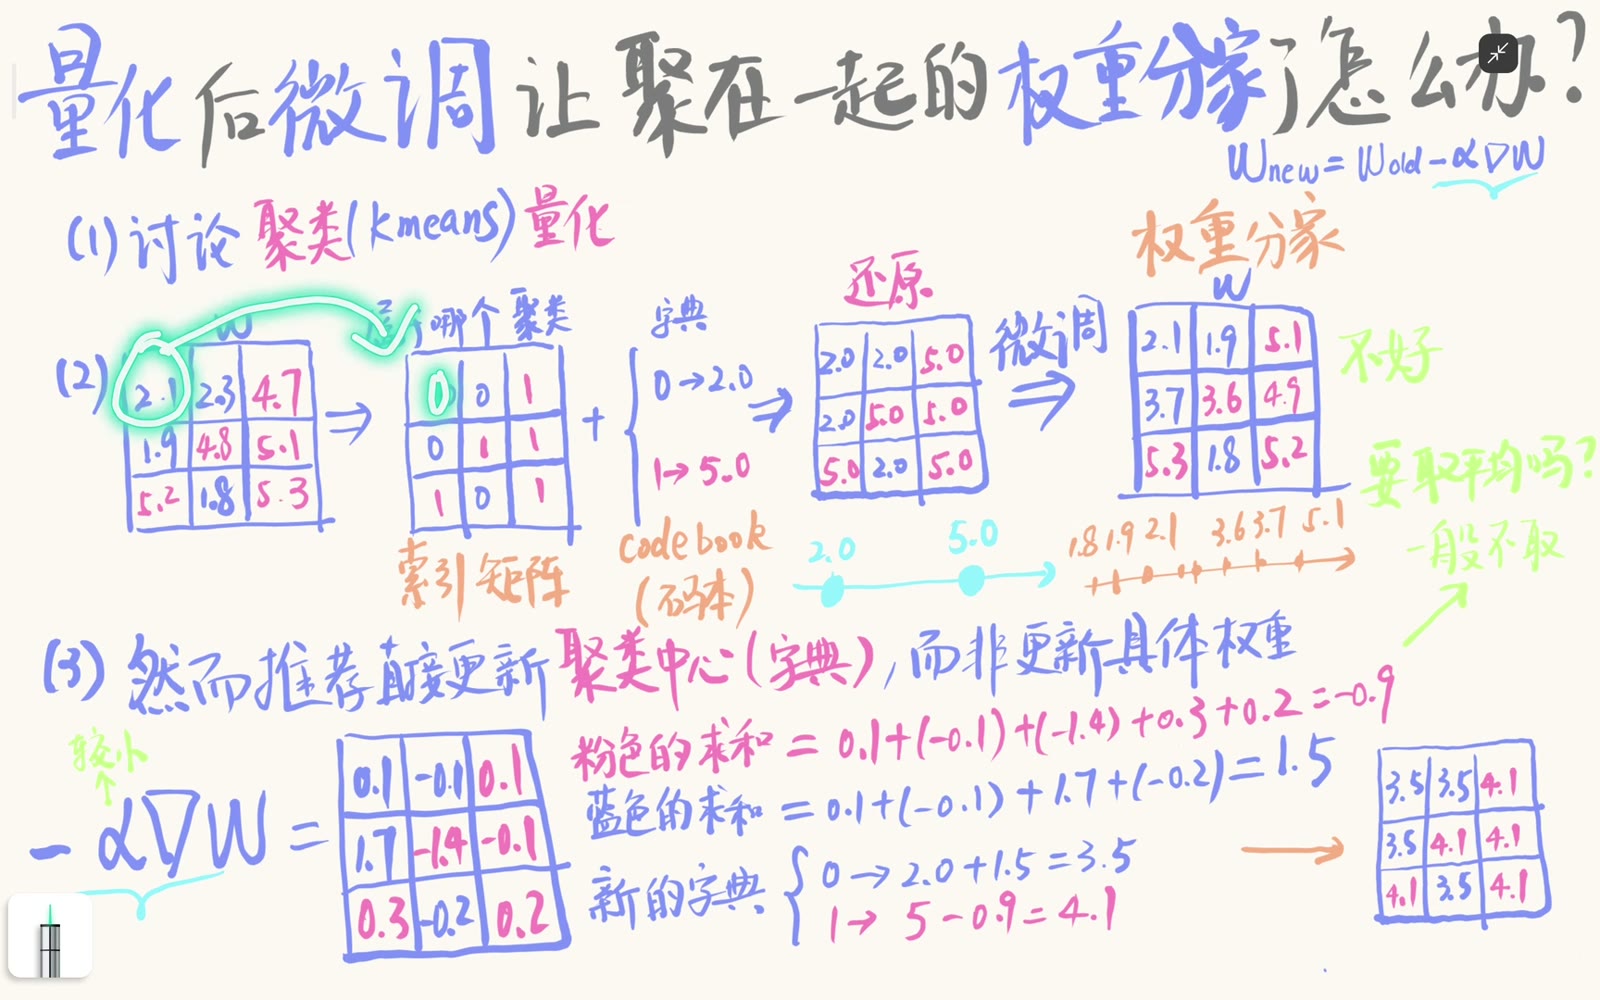 量化后微调让聚在一起的权重分家了怎么办?
Wnew = Wold - α∇W
(1) 讨论 聚类(kmeans)量化
权重分家
还原
W
W
哪个聚类
字典
微调
(2)
2.1 2.3 4.7
1.9 4.8 5.1
5.2 1.8 5.3
⇒
0 0 1
0 1 1
1 0 1
+
0→2.0
1→5.0
⇒
2.0 2.0 5.0
2.0 5.0 5.0
5.0 2.0 5.0
⇒
2.1 1.9 5.1
3.7 3.6 4.9
5.3 1.8 5.2
不好
要取平均吗?
一般不取
索引矩阵
codebook
(码本)
2.0 5.0
1.8 1.9 2.1 3.6 3.7 5.1
(3) 然而推荐直接更新聚类中心(字典),而非更新具体权重
较小
- α∇W =
0.1 -0.1 0.1
1.7 -1.4 -0.1
0.3 -0.2 0.2
粉色的求和 = 0.1+(-0.1)+(-1.4)+0.3+0.2=-0.9
蓝色的求和 = 0.1+(-0.1)+1.7+(-0.2)=1.5
新的字典
0→2.0+1.5=3.5
1→5-0.9=4.1
3.5 3.5 4.1
3.5 4.1 4.1
4.1 3.5 4.1